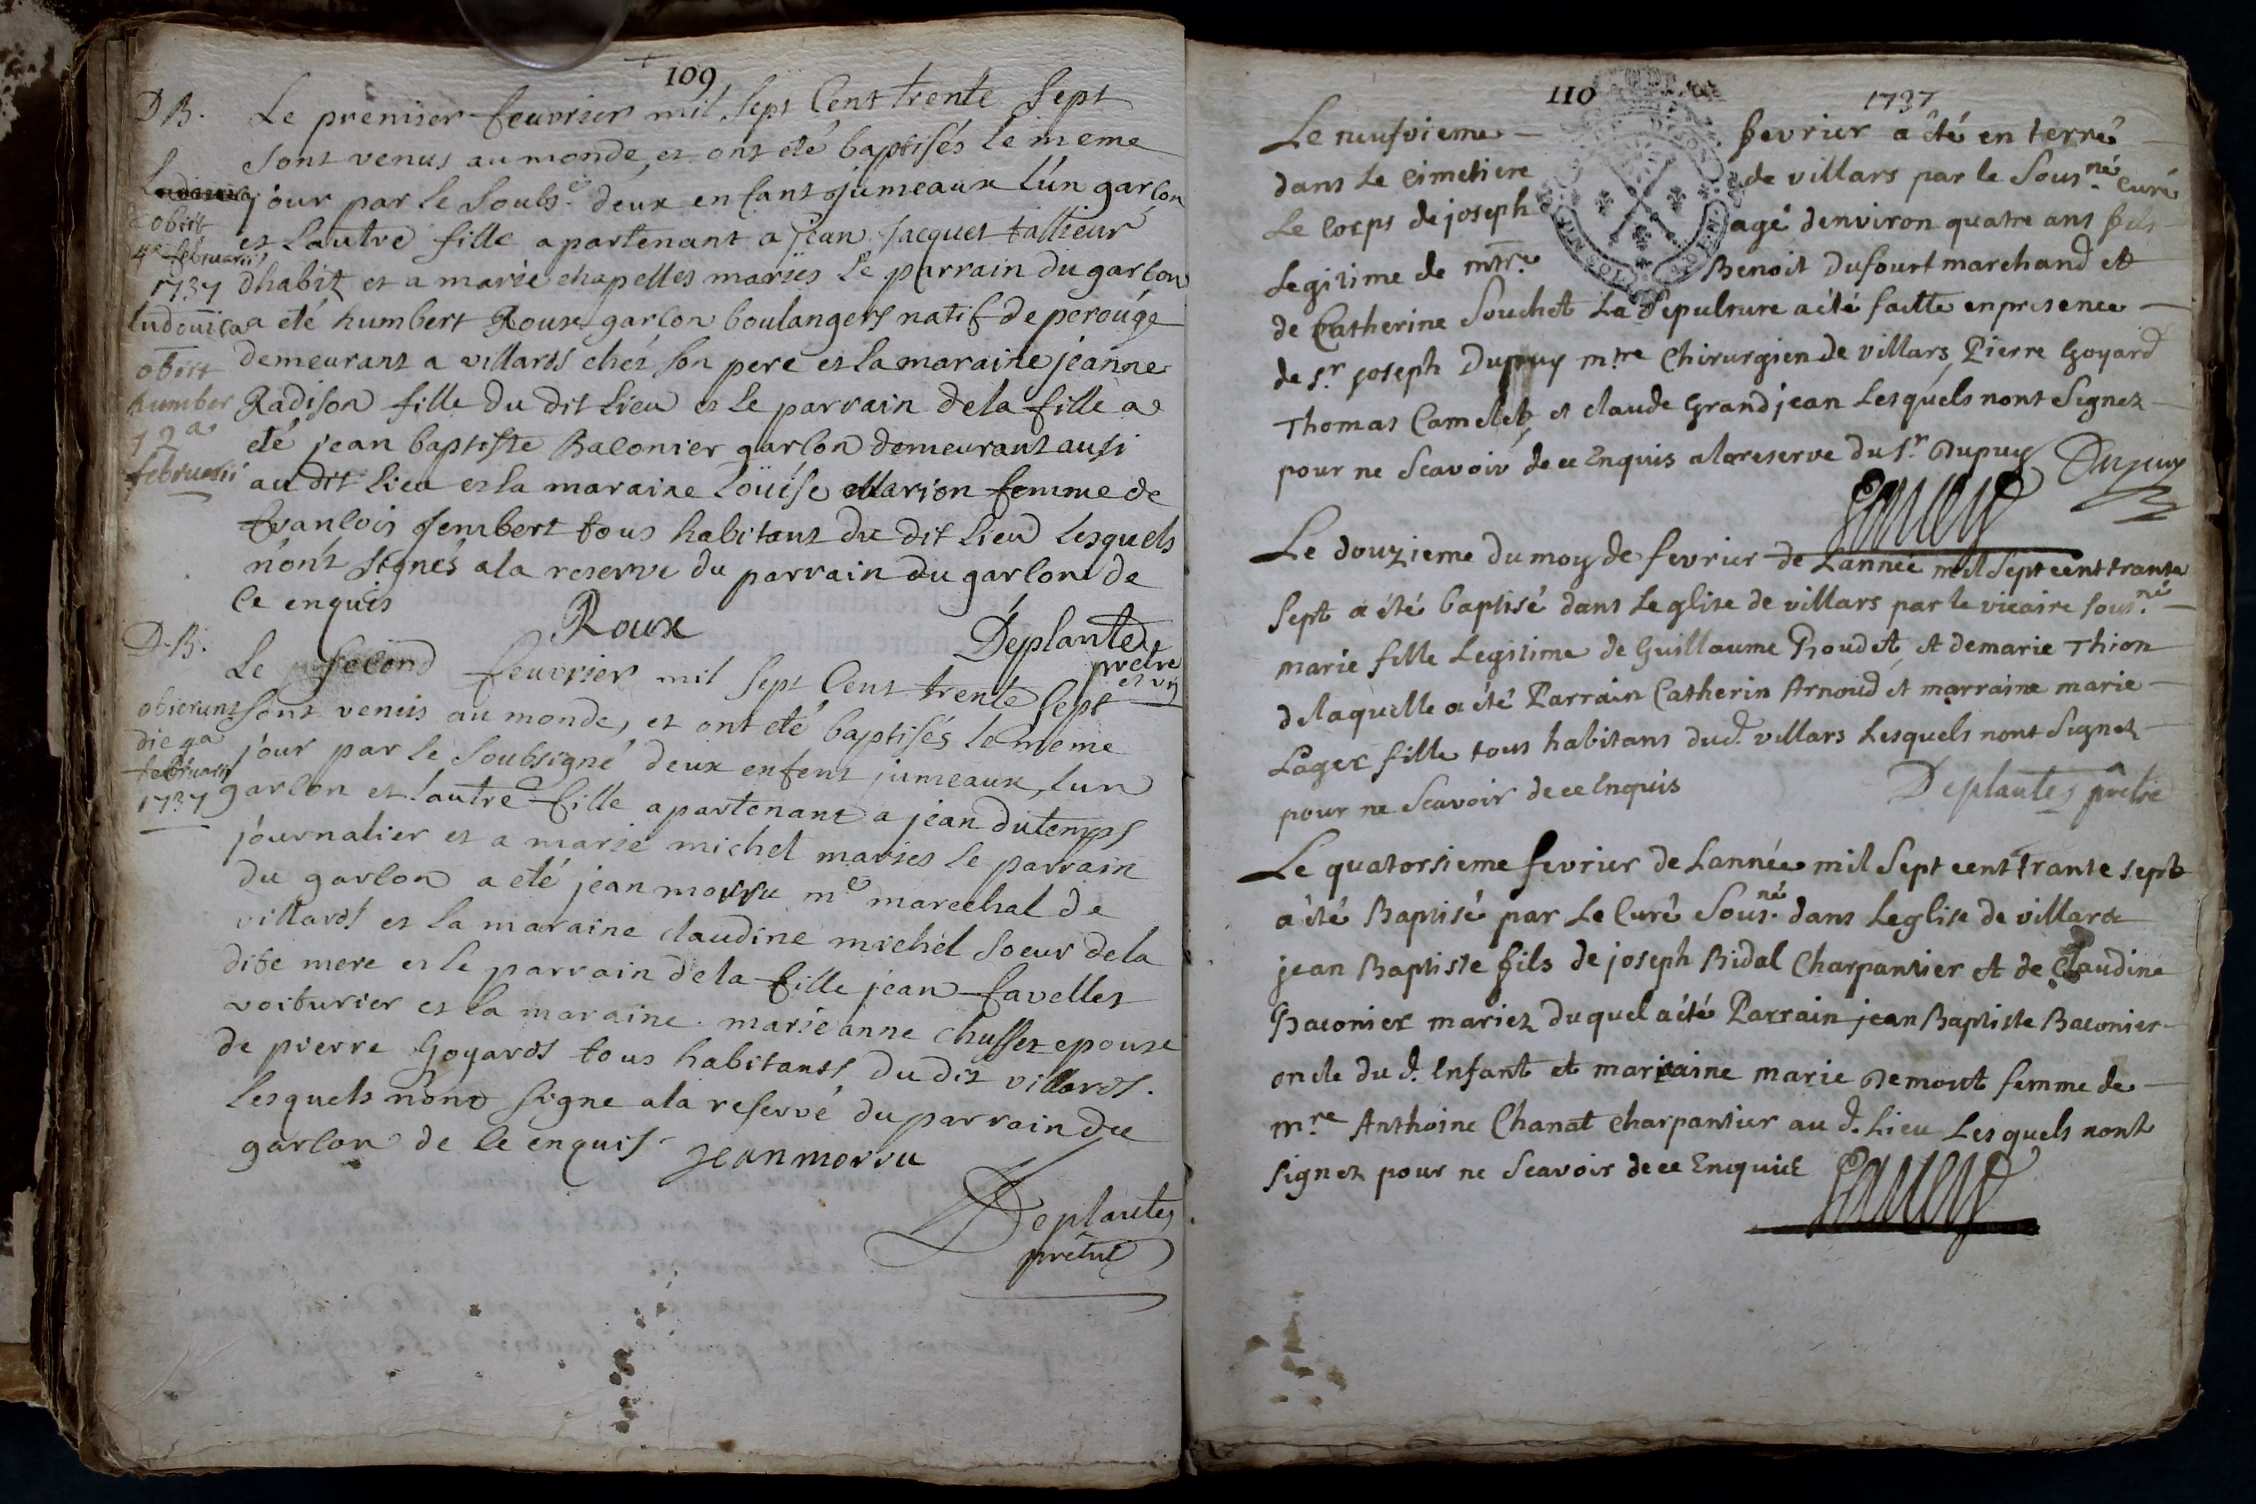 109
D B. Le premier feuvrier mil sept Cent trente sept
sont venus au monde, et ont eté baptisés le meme
jour par le soubs.é deux enfant jumeaux l'ún garcon
et lautre fille apartenant a jean jacquet tallieur
dhabit et a marie chapelles mariés le parrain du garcon
a eté humbert Roux garcon boulangers natif de perouge
demeurant a villards chés son pere et la maraine jeanne
Radison fille du dit lieu et le parrain de la fille a
eté jean baptiste Baconier garcon demeurant aussi
au dit lieu et la maraine Loüise Marion femme de
francois jembert tous habitant du dit lieu lesquels
n'ont signés a la reserve du parrain du garcon de
ce enquis
Roux
Deplante
prêtre
et vic
obiit
4a februarii
1737
ludovica
obiit
humber
12a
februarii
D. B. Le second feuvrier mil sept Cent trente sept
sont venus au monde, et ont eté baptisés le meme
jour par le soubsigné deux enfent jumeaux, lun
garcon et lautre fille apartenant a jean dutemps
journalier et a marie michel mariés le parrain
du garcon a eté jean morru me marechal de
villards et la maraine claudine michel soeur de la
dite mere et le parrain de la fille jean favellet
voiturier et la maraine marie anne chusset epouse
de pierre Goyards tous habitants du dit villards.
lesquels n'ont signe a la reservé du parrain du
garcon de ce enquis
jean morru
Deplantes
prêtre
obierunt
die 9a
februarii
1737
110
1737
Le neufvieme fevrier a été en terré
dans le cimetiere de villars par le Sous.né curé
Le corps de joseph agé denviron quatre ans fils
Legitime de mtre Benoit Dufourt marchand et
de Catherine Souchet La Sepulture a été faitte en presence
de sr joseph Dupuy mtre Chirurgien de villars, Pierre Goyard
Thomas Camelet, et claude Grandjean Lesquels nont Signez
pour ne Scavoir de ce Enquis a la reserve du sr Dupuy
Dupuy
Le douzieme du moy de fevrier de Lannée mil Sept cent trante
Sept a été baptisé dans Leglise de villars par le vicaire sous.né
marie fille Legitime de Guillaume Poudet, et de marie Thion
de laquelle a été Parrain Catherin Arnoud et marraine marie
Lager fille tous habitans dud. villars Lesquels nont Signez
pour ne Scavoir de ce Enquis
Deplantes prêtre
Le quatorsieme fevrier de Lannée mil Sept cent trante sept
a été Baptisé par Le Curé Sous.né dans Leglise de villars
jean Baptiste fils de joseph Bidal Charpantier et de Claudine
Baconier mariez duquel a été Parrain jean Baptiste Baconier
oncle du d. Enfant et marraine marie Demont femme de
mre Anthoine Chanat Charpantier au d. Lieu Lesquels nont
signez pour ne Scavoir de ce Enquis